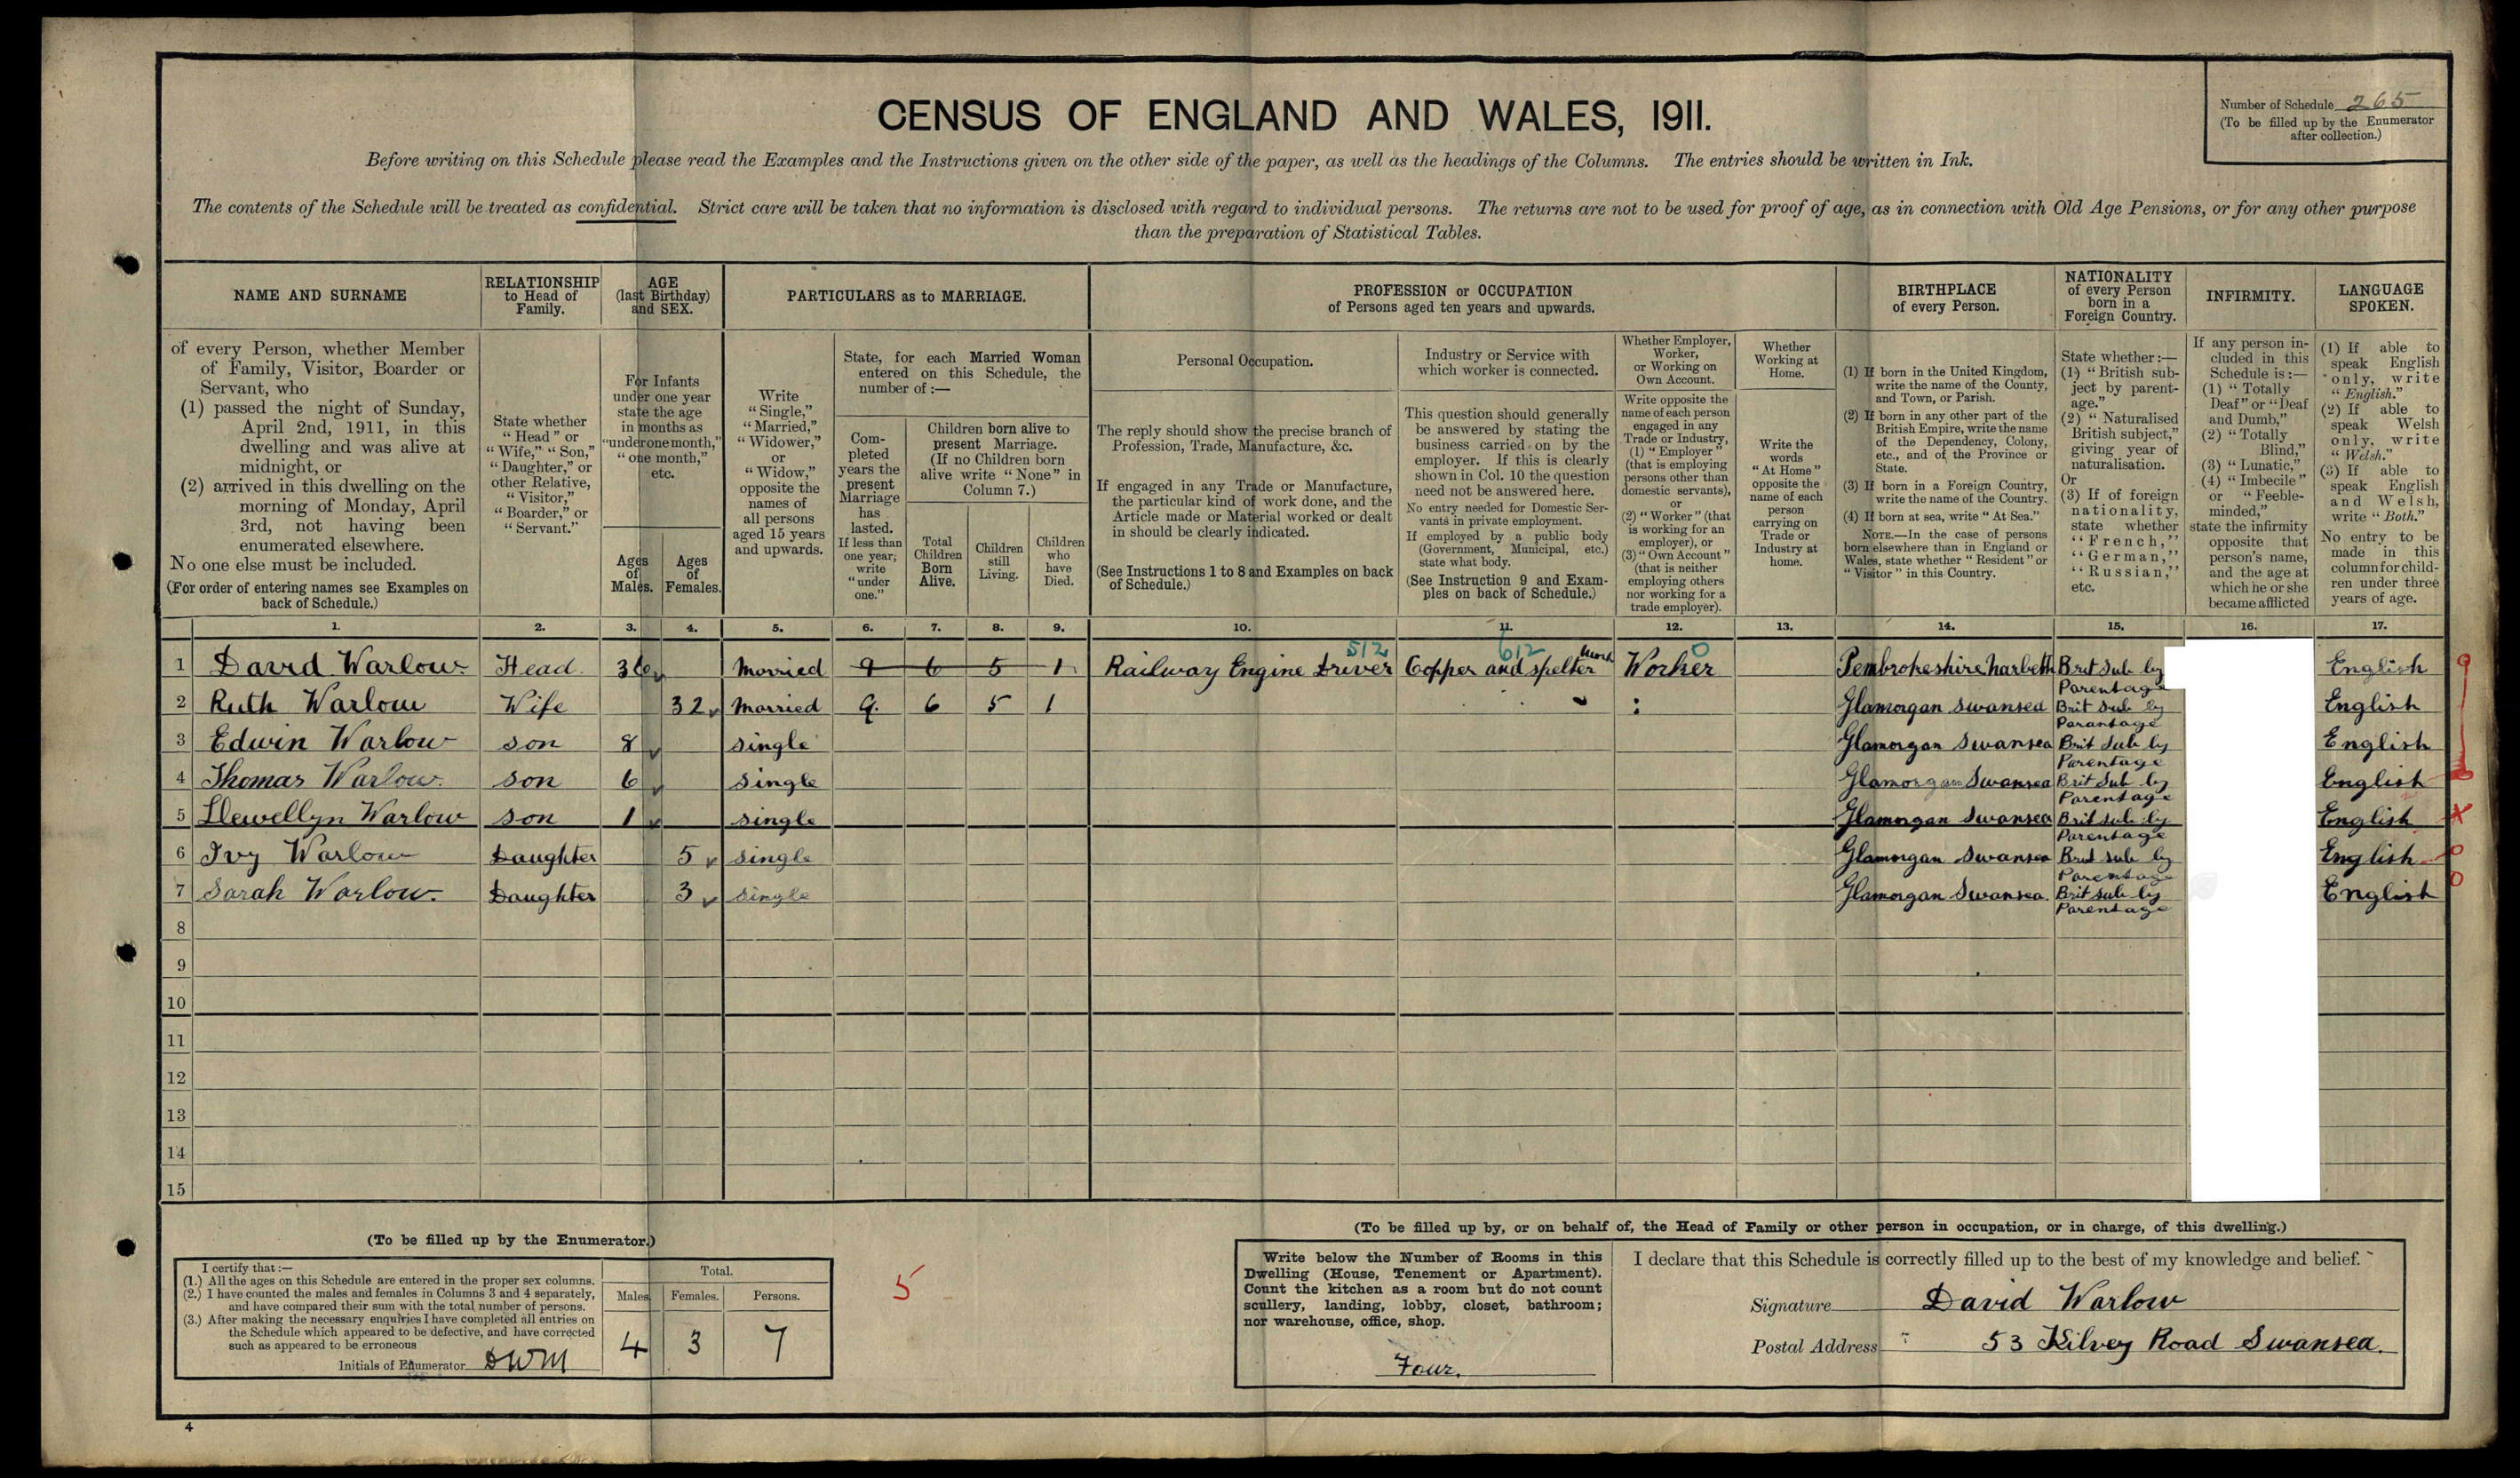 CENSUS OF ENGLAND AND WALES, 1911.
Number of Schedule 265
(To be filled up by the Enumerator
after collection.)
Before writing on this Schedule please read the Examples and the Instructions given on the other side of the paper, as well as the headings of the Columns. The entries should be written in Ink.
The contents of the Schedule will be treated as confidential. Strict care will be taken that no information is disclosed with regard to individual persons. The returns are not to be used for proof of age, as in connection with Old Age Pensions, or for any other purpose
than the preparation of Statistical Tables.
NAME AND SURNAME
of every Person, whether Member
of Family, Visitor, Boarder or
Servant, who
(1) passed the night of Sunday,
April 2nd, 1911, in this
dwelling and was alive at
midnight, or
(2) arrived in this dwelling on the
morning of Monday, April
3rd, not having been
enumerated elsewhere.
No one else must be included.
(For order of entering names see Examples on
back of Schedule.)
RELATIONSHIP
to Head of
Family.
State whether
"Head" or
"Wife," "Son,"
"Daughter," or
other Relative,
"Visitor,"
"Boarder," or
"Servant."
AGE
(last Birthday)
and SEX.
For Infants
under one year
state the age
in months as
"under one month,"
"one month,"
etc.
Ages
of
Males.
Ages
of
Females.
PARTICULARS as to MARRIAGE.
Write
"Single,"
"Married,"
"Widower,"
or
"Widow,"
opposite the
names of
all persons
aged 15 years
and upwards.
State, for each Married Woman
entered on this Schedule, the
number of :—
Com-
pleted
years the
present
Marriage
has
lasted.
If less than
one year,
write
"under
one."
Children born alive to
present Marriage.
(If no Children born
alive write "None" in
Column 7.)
Total
Children
Born
Alive.
Children
still
Living.
Children
who
have
Died.
PROFESSION or OCCUPATION
of Persons aged ten years and upwards.
Personal Occupation.
The reply should show the precise branch of
Profession, Trade, Manufacture, &c.
If engaged in any Trade or Manufacture,
the particular kind of work done, and the
Article made or Material worked or dealt
in should be clearly indicated.
(See Instructions 1 to 8 and Examples on back
of Schedule.)
Industry or Service with
which worker is connected.
This question should generally
be answered by stating the
business carried on by the
employer. If this is clearly
shown in Col. 10 the question
need not be answered here.
No entry needed for Domestic Ser-
vants in private employment.
If employed by a public body
(Government, Municipal, etc.)
state what body.
(See Instruction 9 and Exam-
ples on back of Schedule.)
Whether Employer,
Worker,
or Working on
Own Account.
Write opposite the
name of each person
engaged in any
Trade or Industry,
(1) "Employer"
(that is employing
persons other than
domestic servants),
or
(2) "Worker" (that
is working for an
employer), or
(3) "Own Account"
(that is neither
employing others
nor working for a
trade employer).
Whether
Working at
Home.
Write the
words
"At Home"
opposite the
name of each
person
carrying on
Trade or
Industry at
home.
BIRTHPLACE
of every Person.
(1) If born in the United Kingdom,
write the name of the County,
and Town, or Parish.
(2) If born in any other part of the
British Empire, write the name
of the Dependency, Colony,
etc., and of the Province or
State.
(3) If born in a Foreign Country,
write the name of the Country.
(4) If born at sea, write "At Sea."
NOTE.—In the case of persons
born elsewhere than in England or
Wales, state whether "Resident" or
"Visitor" in this Country.
NATIONALITY
of every Person
born in a
Foreign Country.
State whether :—
(1) "British sub-
ject by parent-
age."
(2) "Naturalised
British subject,"
giving year of
naturalisation.
Or
(3) If of foreign
nationality,
state whether
"French,"
"German,"
"Russian,"
etc.
INFIRMITY.
If any person in-
cluded in this
Schedule is :—
(1) "Totally
Deaf" or "Deaf
and Dumb,"
(2) "Totally
Blind,"
(3) "Lunatic,"
(4) "Imbecile"
or "Feeble-
minded,"
state the infirmity
opposite that
person's name,
and the age at
which he or she
became afflicted
LANGUAGE
SPOKEN.
(1) If able to
speak English
only, write
"English."
(2) If able to
speak Welsh
only, write
"Welsh."
(3) If able to
speak English
and Welsh,
write "Both."
No entry to be
made in this
column for child-
ren under three
years of age.
1. 2. 3. 4. 5. 6. 7. 8. 9. 10. 11. 12. 13. 14. 15. 16. 17.
512 612 0
1 David Warlow. Head. 36 Married 9 6 5 1 Railway Engine Driver Copper and Spelter Work Worker Pembrokeshire Narbeth Brit Sub by Parentage English 9
2 Ruth Warlow Wife 32 Married 9. 6 5 1 Glamorgan Swansea Brit Sub by Parantage English
3 Edwin Warlow son 8 single Glamorgan Swansea Brit Sub by Parentage English
4 Thomas Warlow. son 6 single Glamorgan Swansea Brit Sub by Parentage English
5 Llewellyn Warlow son 1 single Glamorgan Swansea Brit sub by Parentage English
6 Ivy Warlow Daughter 5 single Glamorgan Swansea Brit sub by Parentage English
7 Sarah Warlow. Daughter 3 single Glamorgan Swansea. Brit sub by Parentage English
8
9
10
11
12
13
14
15
(To be filled up by the Enumerator.)
I certify that :—
(1.) All the ages on this Schedule are entered in the proper sex columns.
(2.) I have counted the males and females in Columns 3 and 4 separately,
and have compared their sum with the total number of persons.
(3.) After making the necessary enquiries I have completed all entries on
the Schedule which appeared to be defective, and have corrected
such as appeared to be erroneous
Initials of Enumerator DWM
Total.
Males. Females. Persons.
4 3 7
5
(To be filled up by, or on behalf of, the Head of Family or other person in occupation, or in charge, of this dwelling.)
Write below the Number of Rooms in this
Dwelling (House, Tenement or Apartment).
Count the kitchen as a room but do not count
scullery, landing, lobby, closet, bathroom;
nor warehouse, office, shop.
Four.
I declare that this Schedule is correctly filled up to the best of my knowledge and belief.
Signature David Warlow
Postal Address 53 Kilvey Road Swansea.
4